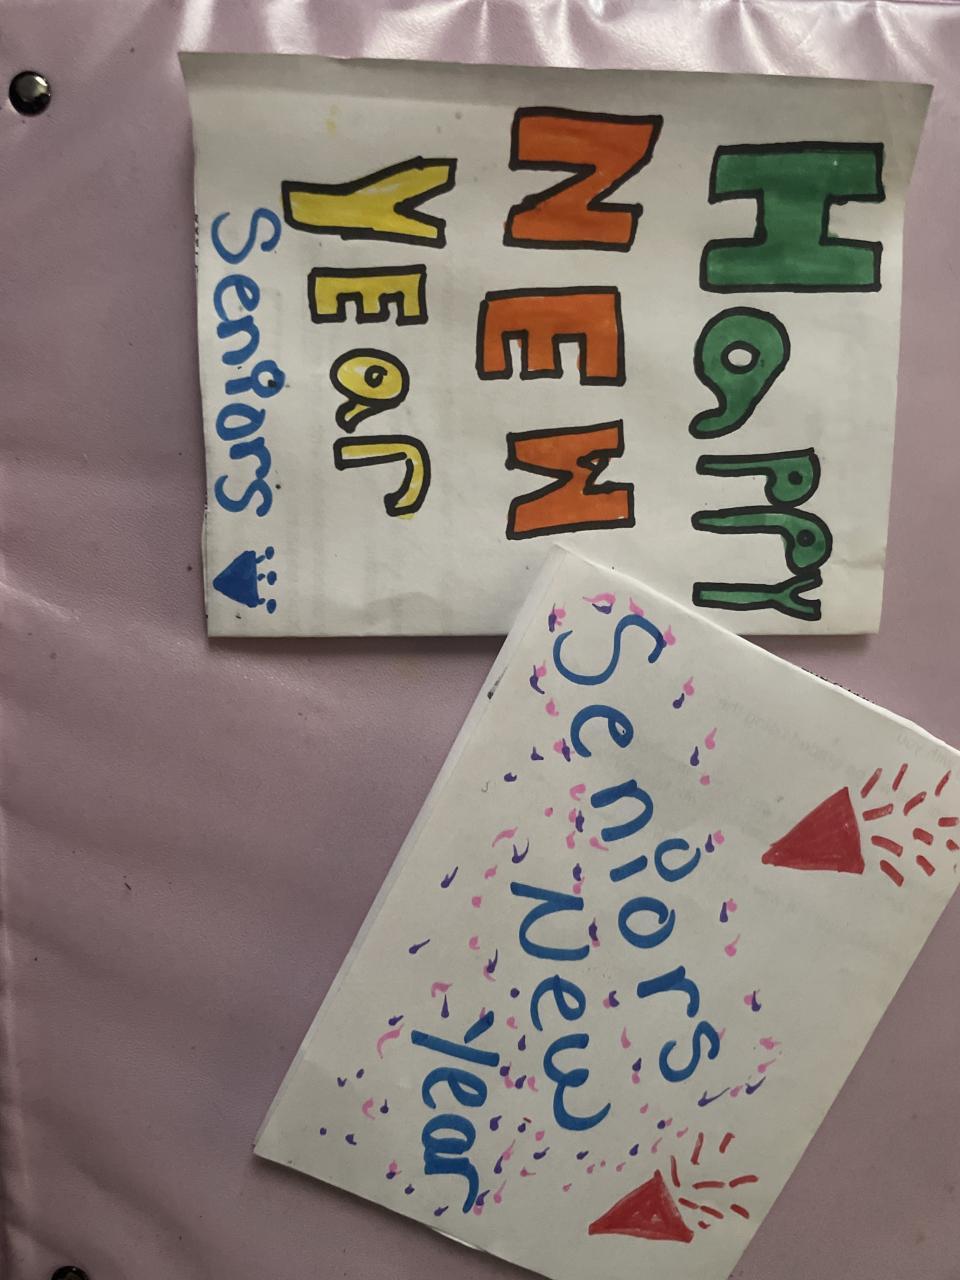 Happy
NEW
YEar
Seniors
Seniors
New
Year